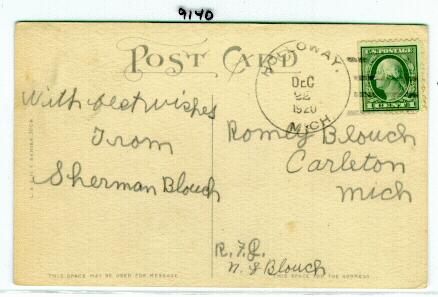 9140
POST CARD
HOLLOWAY,
DEC
22
1920
MICH
U.S. POSTAGE
1 CENT 1
With best wishes
From
Sherman Blouch
Romey Blouch
Carleton
Mich
R.F.D.
N. S Blouch
THIS SPACE MAY BE USED FOR MESSAGE
THIS SPACE FOR THE ADDRESS